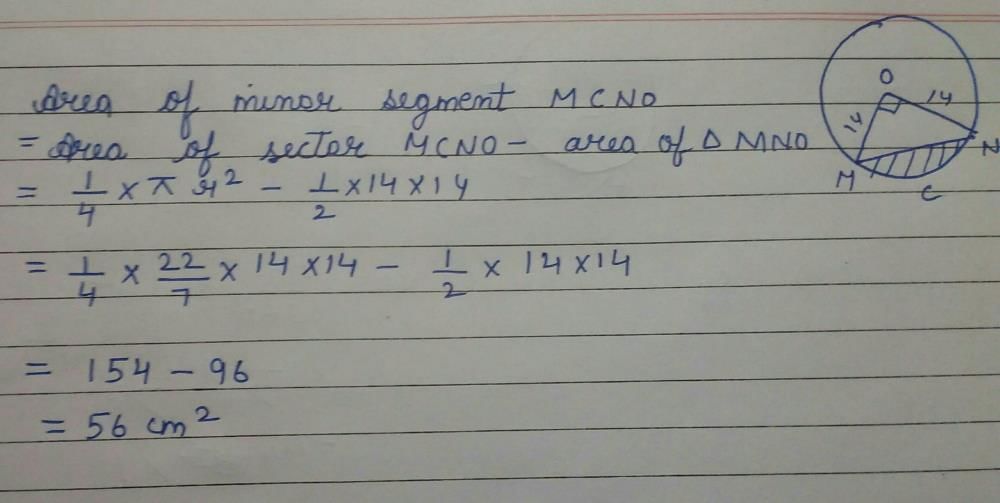 Area of minor segment MCNO
= Area of sector MCNO - area of Δ MNO
= 1/4 × π r² - 1/2 × 14 × 14
= 1/4 × 22/7 × 14 × 14 - 1/2 × 14 × 14
= 154 - 96
= 56 cm²
O
14
14
N
M
C